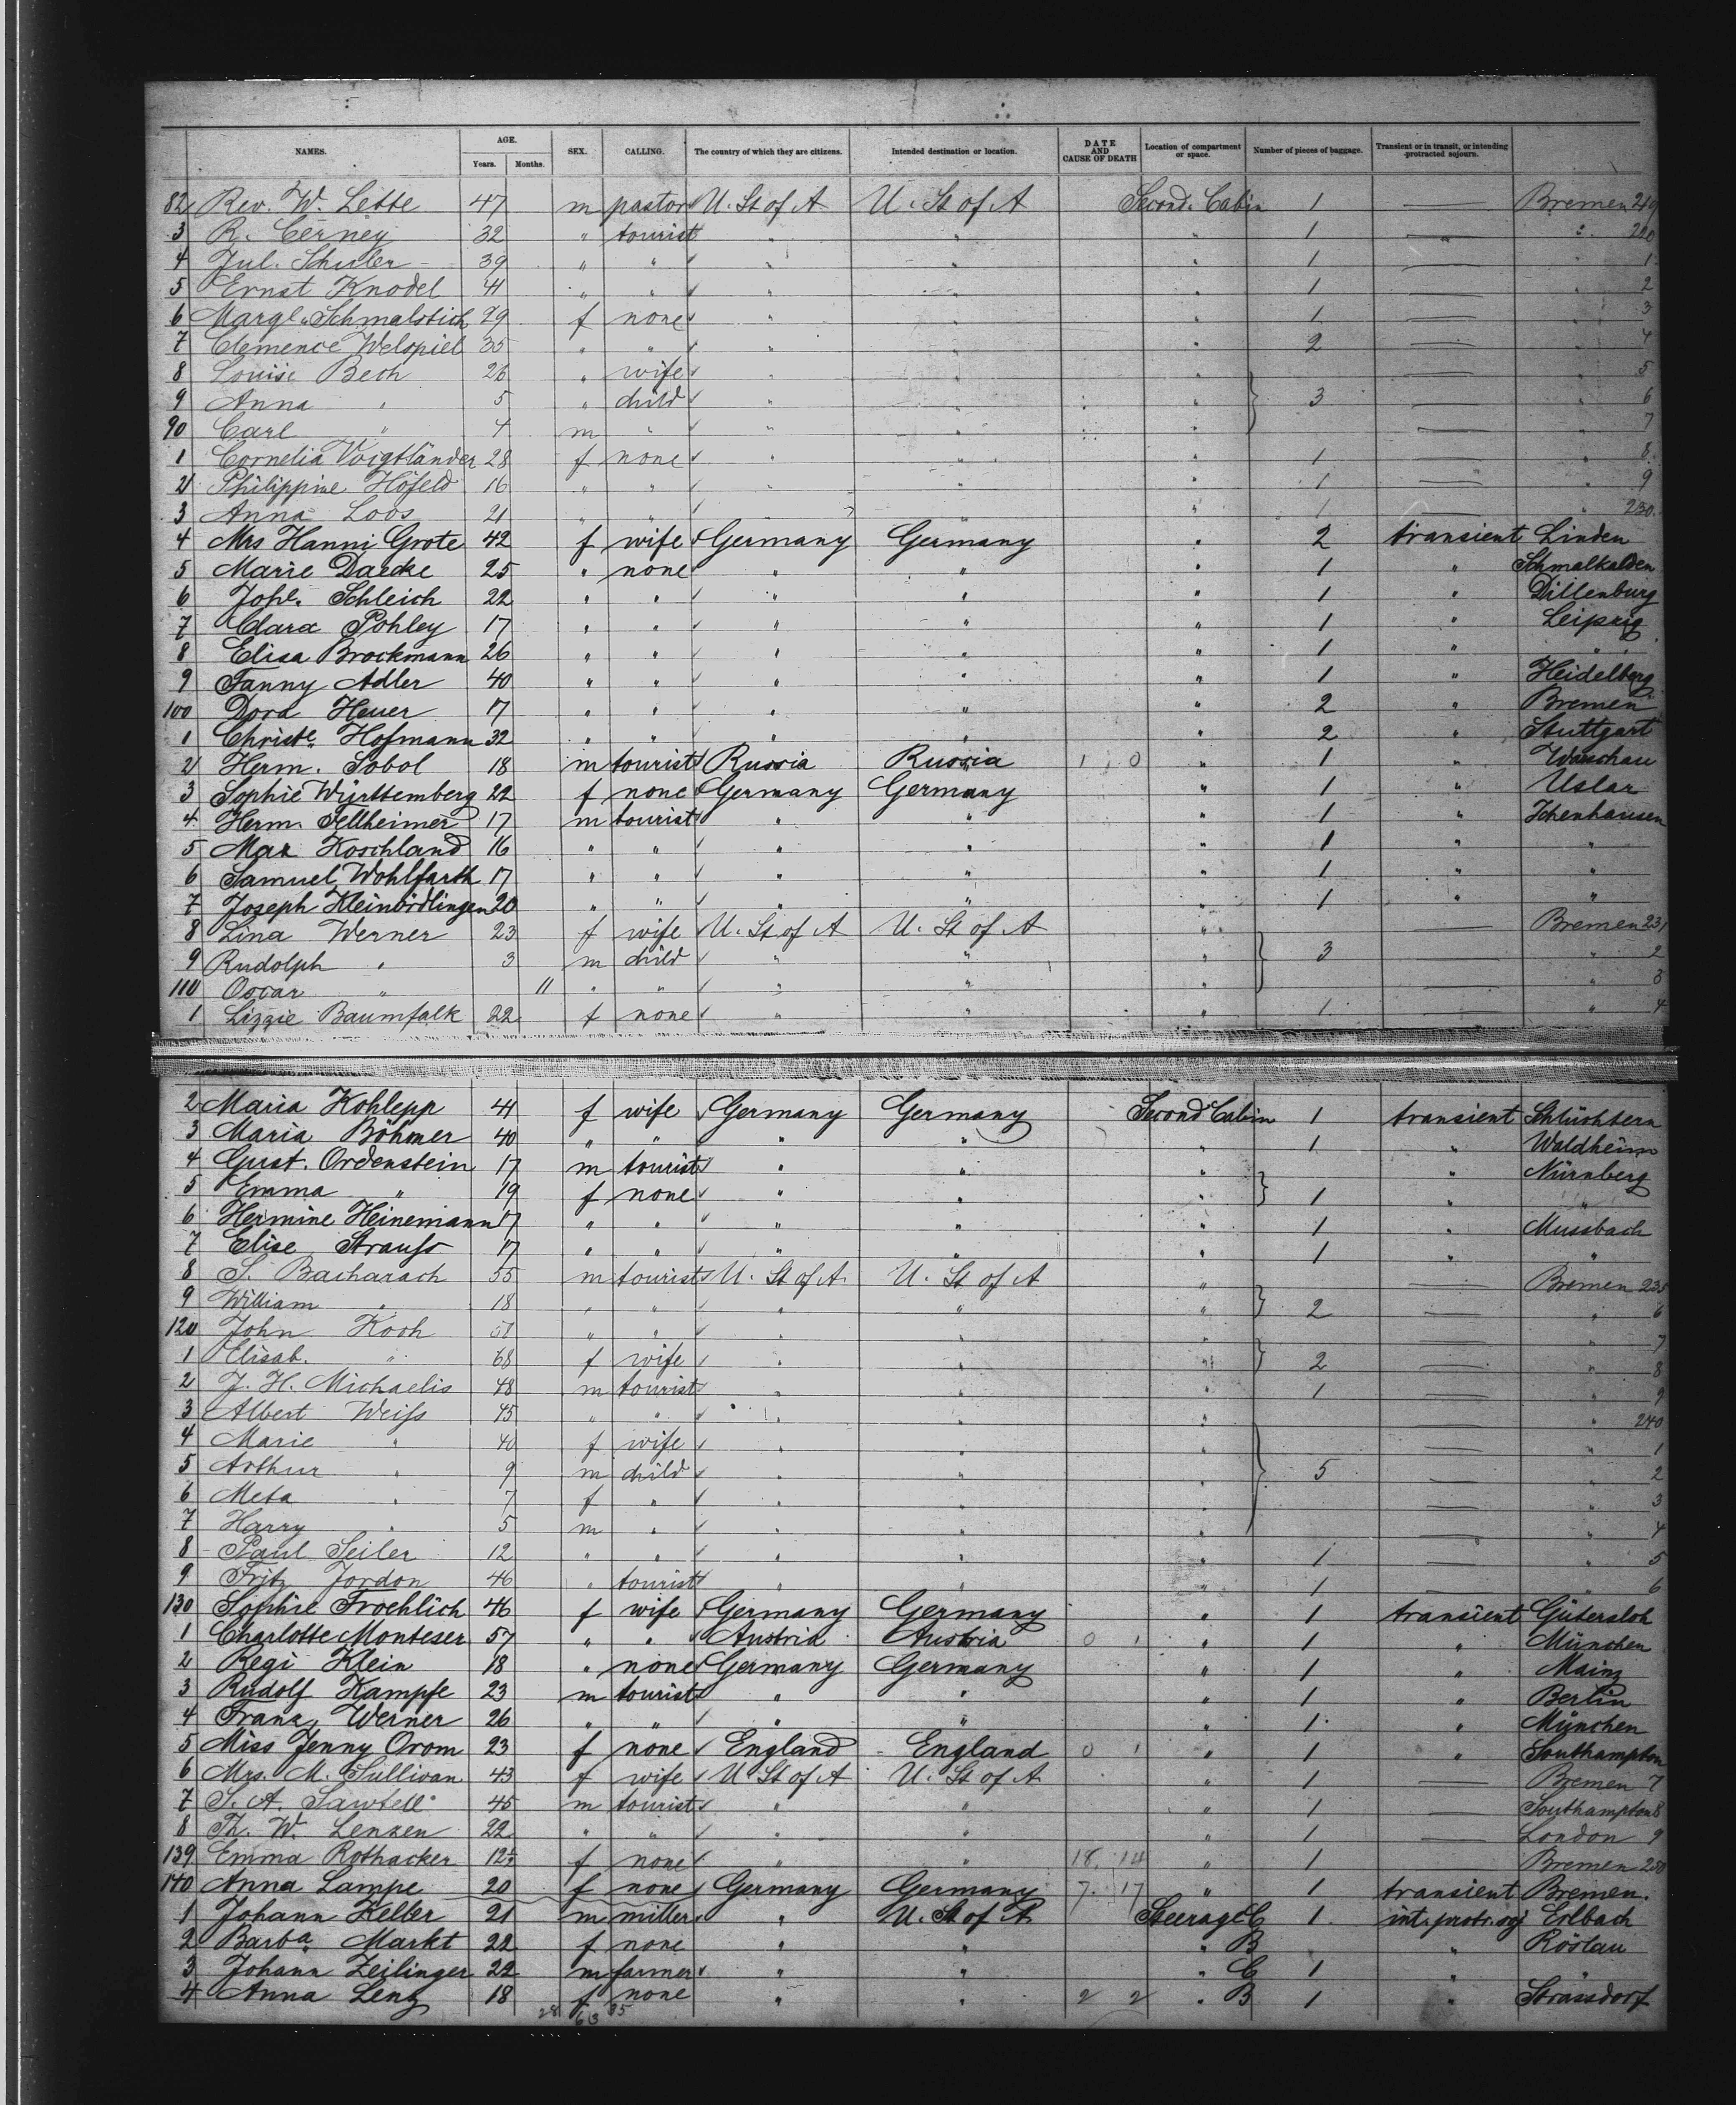 NAMES. AGE. Years. Months. SEX. CALLING. The country of which they are citizens. Intended destination or location. DATE AND CAUSE OF DEATH Location of compartment or space. Number of pieces of baggage. Transient or in transit, or intending protracted sojourn.
82 Rev. W. 47 m pastor U. St of A U. St of A Second Cabin 1 — Bremen
3 R. Cerney 32 " tourist " " " 1 — " 220
4 Jul. Schuler 39 " " " " " 1 — " 1
5 Ernst Knodel 41 " " " " " 1 — " 2
6 Marg. Schmalstich 29 f none " " " 1 — " 3
7 Clemence Welspiel 35 " " " " " 2 — " 4
8 Louise Bech 26 " wife " " " — " 5
9 Anna " 5 " child " " " 3 — " 6
90 Carl " 4 m " " " " — " 7
1 Cornelia Voigtländer 28 f none " " " 1 — " 8
2 Philippine Höfeld 16 " " " " " 1 — " 9
3 Anna Loos 21 " " " " " 1 — " 230.
4 Mrs Hanni Grote 42 f wife Germany Germany " 2 transient Linden
5 Marie Daecke 25 " none " " " 1 " Schmalkalden
6 Johe. Schleich 22 " " " " " 1 " Dillenburg
7 Clara Pohley 17 " " " " " 1 " Leipzig
8 Elisa Brockmann 26 " " " " " 1 " "
9 Fanny Adler 40 " " " " " 1 " Heidelberg
100 Dora Heuer 17 " " " " " 2 " Bremen
1 Christe. Hofmann 32 " " " " " 2 " Stuttgart
2 Herm. Sobol 18 m tourist Russia Russia 1 0 " 1 " Warschau
3 Sophie Württemberg 22 f none Germany Germany " 1 " Uslar
4 Herm. Fellheimer 17 m tourist " " " 1 " Ichenhausen
5 Max Koschland 16 " " " " " 1 " "
6 Samuel Wohlfarth 17 " " " " " 1 " "
7 Joseph Kleinördlingen 20 " " " " " 1 " "
8 Lina Werner 23 f wife U. St of A U. St of A " — Bremen 231
9 Rudolph " 3 m child " " " 3 — " 2
110 Oscar " 11 " " " " " — " 3
1 Lizzie Baumfalk 22 f none " " " 1 — " 4
2 Maria Kohlepp 41 f wife Germany Germany Second Cabin 1 transient Schlüchtern
3 Maria Böhmer 40 " " " " " 1 " Waldheim
4 Gust. Ordenstein 17 m tourist " " " " Nürnberg
5 Emma " 19 f none " " " 1 " "
6 Hermine Heinemann 17 " " " " " 1 " Mussbach
7 Elise Strauss 17 " " " " " 1 " "
8 S. Bacharach 55 m tourist U. St of A. U. St of A " — Bremen 235
9 William " 18 " " " " " 2 — " 6
120 John Koch " " " " " — " 7
1 Elisab. " 68 f wife " " " 2 — " 8
2 J. H. Michaelis 48 m tourist " " " 1 — " 9
3 Albert Weiss 45 " " " " " " 240
4 Marie " 40 f wife " " " — " 1
5 Arthur " 9 m child " " " 5 — " 2
6 Meta " 7 f " " " " — " 3
7 Harry " 5 m " " " " — " 4
8 Paul Seiler 12 " " " " " 1 — " 5
9 Fritz Jordon 46 " tourist " " " 1 — " 6
130 Sophie Froehlich 46 f wife Germany Germany " 1 transient Gütersloh
1 Charlotte Monteser 57 " " Austria Austria 0 1 " 1 " München
2 Regi Klein 18 " none Germany Germany " 1 " Mainz
3 Rudolf Kampfe 23 m tourist " " " 1 " Berlin
4 Franz Werner 26 " " " " " 1 " München
5 Miss Jenny Orom 23 f none England England 0 1 " 1 " Southampton
6 Mrs. M. Sullivan 43 f wife U. St of A U. St of A " 1 — Bremen 7
7 S. A. Sawtell 45 m tourist " " " 1 — Southampton 8
8 Th. W. Lenzen 22 " " " " " 1 — London 9
139 Emma Rothacker f none " " 18. 14 " 1 Bremen 250
140 Anna Lampe 20 f none Germany Germany 7. 17 " 1 transient Bremen.
1 Johann Keller 21 m miller " U. St of A Steerage C 1. int. protr. soj Erlbach
2 Barba. Markt 22 f none " " " B " Röslau
3 Johann Zeilinger 22 m farmer " " " C 1 " "
4 Anna Lenz 18 f none " " 2 2 " B 1 " Strassdorf
28 63 35